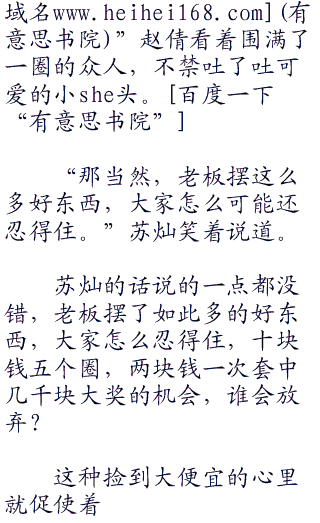 域名www.heihei168.com](有
意思书院)”赵倩看着围满了
一圈的众人，不禁吐了吐可
爱的小she头。[百度一下
“有意思书院”]
“那当然，老板摆这么
多好东西，大家怎么可能还
忍得住。”苏灿笑着说道。
苏灿的话说的一点都没
错，老板摆了如此多的好东
西，大家怎么忍得住，十块
钱五个圈，两块钱一次套中
几千块大奖的机会，谁会放
弃？
这种捡到大便宜的心里
就促使着